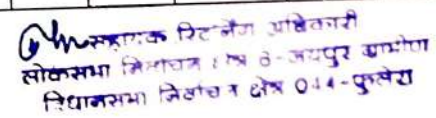 सहायक रिटर्निंग अधिकारी
लोकसभा निर्वाचन क्षेत्र 6-जयपुर ग्रामीण
विधानसभा निर्वाचन क्षेत्र 044-फुलेरा